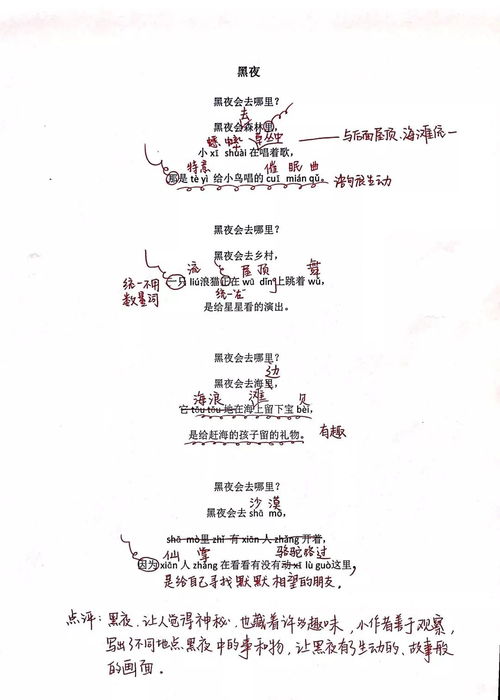 黑夜
黑夜会去哪里？
去
黑夜会森林里，
蟋 蟀 草丛中 与后面屋顶、海滩统一
小 xī shuài 在唱着歌，
特意 催 眠 曲
那是 tè yì 给小鸟唱的 cuī mián qǔ。 语句很生动
黑夜会去哪里？
黑夜会去乡村，
流 屋 顶 舞
统一不用 一只 liú浪猫正在 wū dǐng上跳着 wǔ，
数量词 统一"在"
是给星星看的演出。
黑夜会去哪里？
边
黑夜会去海里，
海浪 滩 贝
它 tōu tōu 地在海上留下宝 bèi，
是给赶海的孩子留的礼物。 有趣
黑夜会去哪里？
沙 漠
黑夜会去 shā mò，
shā mò里 zhǐ 有 xiān 人 zhǎng 开着，
仙 掌 骆驼路过
因为 xiān 人 zhǎng 在看看有没有动 xī lù guò这里，
是给自己寻找默默相望的朋友。
点评：黑夜，让人觉得神秘，也藏着许多趣味，小作者善于观察，
写出了不同地点黑夜中的事和物，让黑夜有了生动的、故事般
的画面。